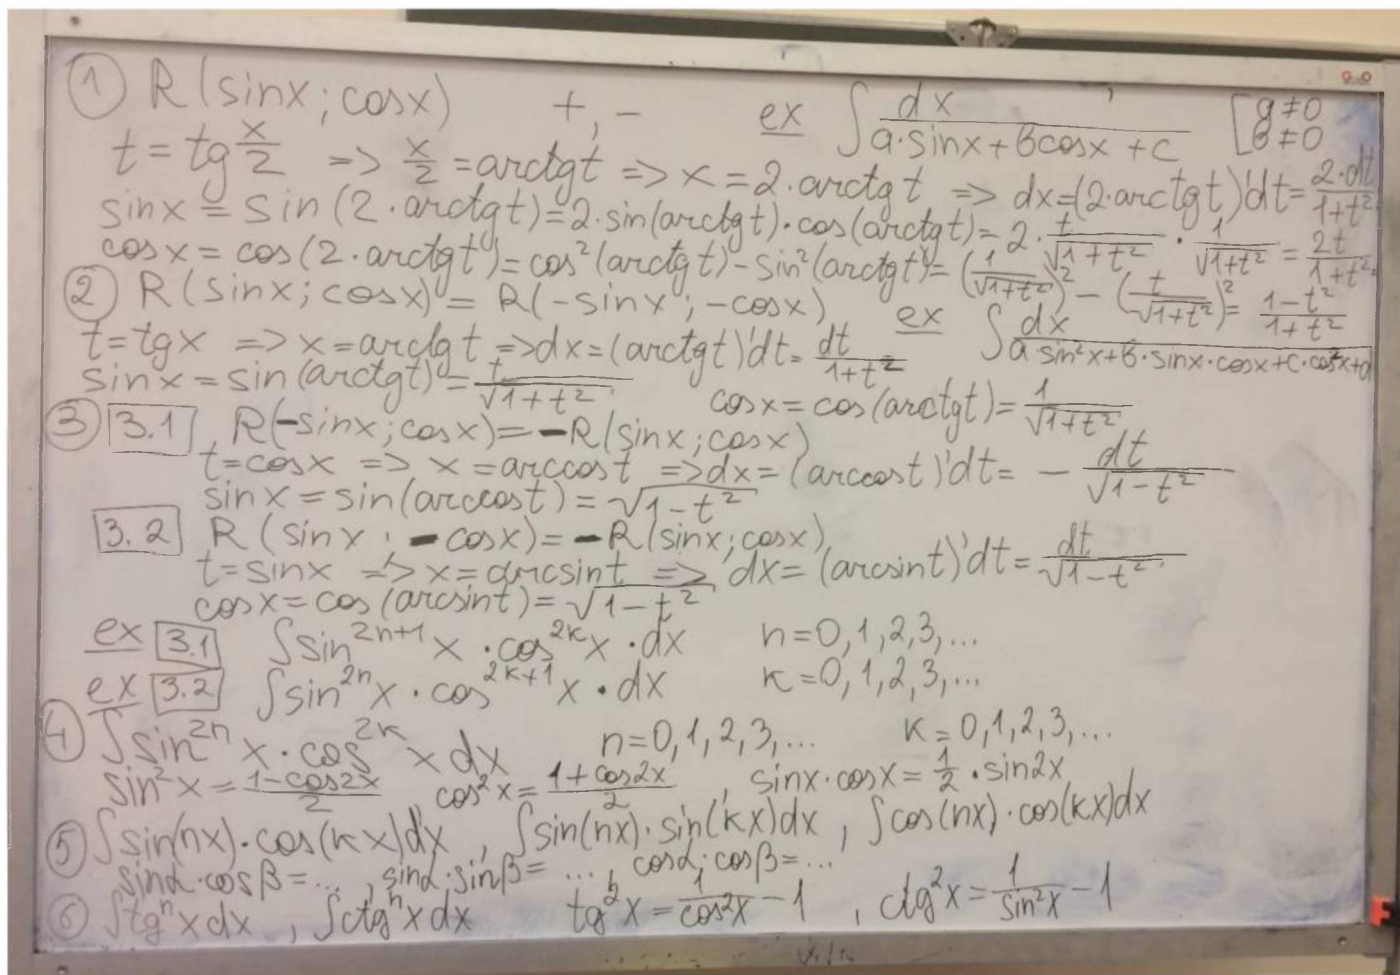 ① R(sinx; cosx) +, - ex ∫ dx/(a·sinx+bcosx+c) [a≠0 b≠0
t = tg x/2 => x/2 = arctgt => x = 2·arctgt => dx=(2·arctgt)'dt= 2·dt/(1+t²)
sinx = sin(2·arctgt)=2·sin(arctgt)·cos(arctgt)= 2·t/√(1+t²) · 1/√(1+t²) = 2t/(1+t²)
cosx = cos(2·arctgt)=cos²(arctgt)-sin²(arctgt)= (1/√(1+t²))² - (t/√(1+t²))² = (1-t²)/(1+t²)
② R(sinx; cosx) = R(-sinx; -cosx) ex ∫ dx/(a·sin²x+b·sinx·cosx+c·cos²x+d)
t=tgx => x=arctgt =>dx=(arctgt)'dt= dt/(1+t²)
sinx=sin(arctgt)= t/√(1+t²) cosx=cos(arctgt)= 1/√(1+t²)
③ 3.1, R(-sinx; cosx)=-R(sinx; cosx)
t=cosx => x=arccost =>dx=(arccost)'dt= - dt/√(1-t²)
sinx=sin(arccost)=√(1-t²)
3.2 R(sinx; -cosx)=-R(sinx; cosx)
t=sinx => x=arcsint => dx=(arcsint)'dt= dt/√(1-t²)
cosx=cos(arcsint)=√(1-t²)
ex 3.1 ∫sin²ⁿ⁺¹x·cos²ᵏx·dx n=0,1,2,3,...
ex 3.2 ∫sin²ⁿx·cos²ᵏ⁺¹x·dx k=0,1,2,3,...
④ ∫sin²ⁿx·cos²ᵏx dx n=0,1,2,3,... k=0,1,2,3,...
sin²x= (1-cos2x)/2 cos²x= (1+cos2x)/2, sinx·cosx= 1/2·sin2x
⑤ ∫sin(nx)·cos(kx)dx, ∫sin(nx)·sin(kx)dx, ∫cos(nx)·cos(kx)dx
sinα·cosβ=..., sinα·sinβ=..., cosα·cosβ=...
⑥ ∫tgⁿxdx, ∫ctgⁿxdx tg²x= 1/cos²x -1, ctg²x= 1/sin²x -1